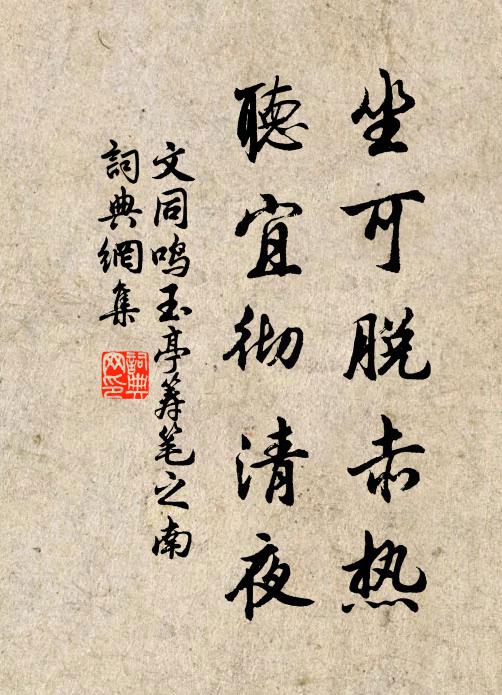 坐可脱赤热
聽宜彻清夜
文同鸣玉亭筹笔之南
詞典網集
詞典网印